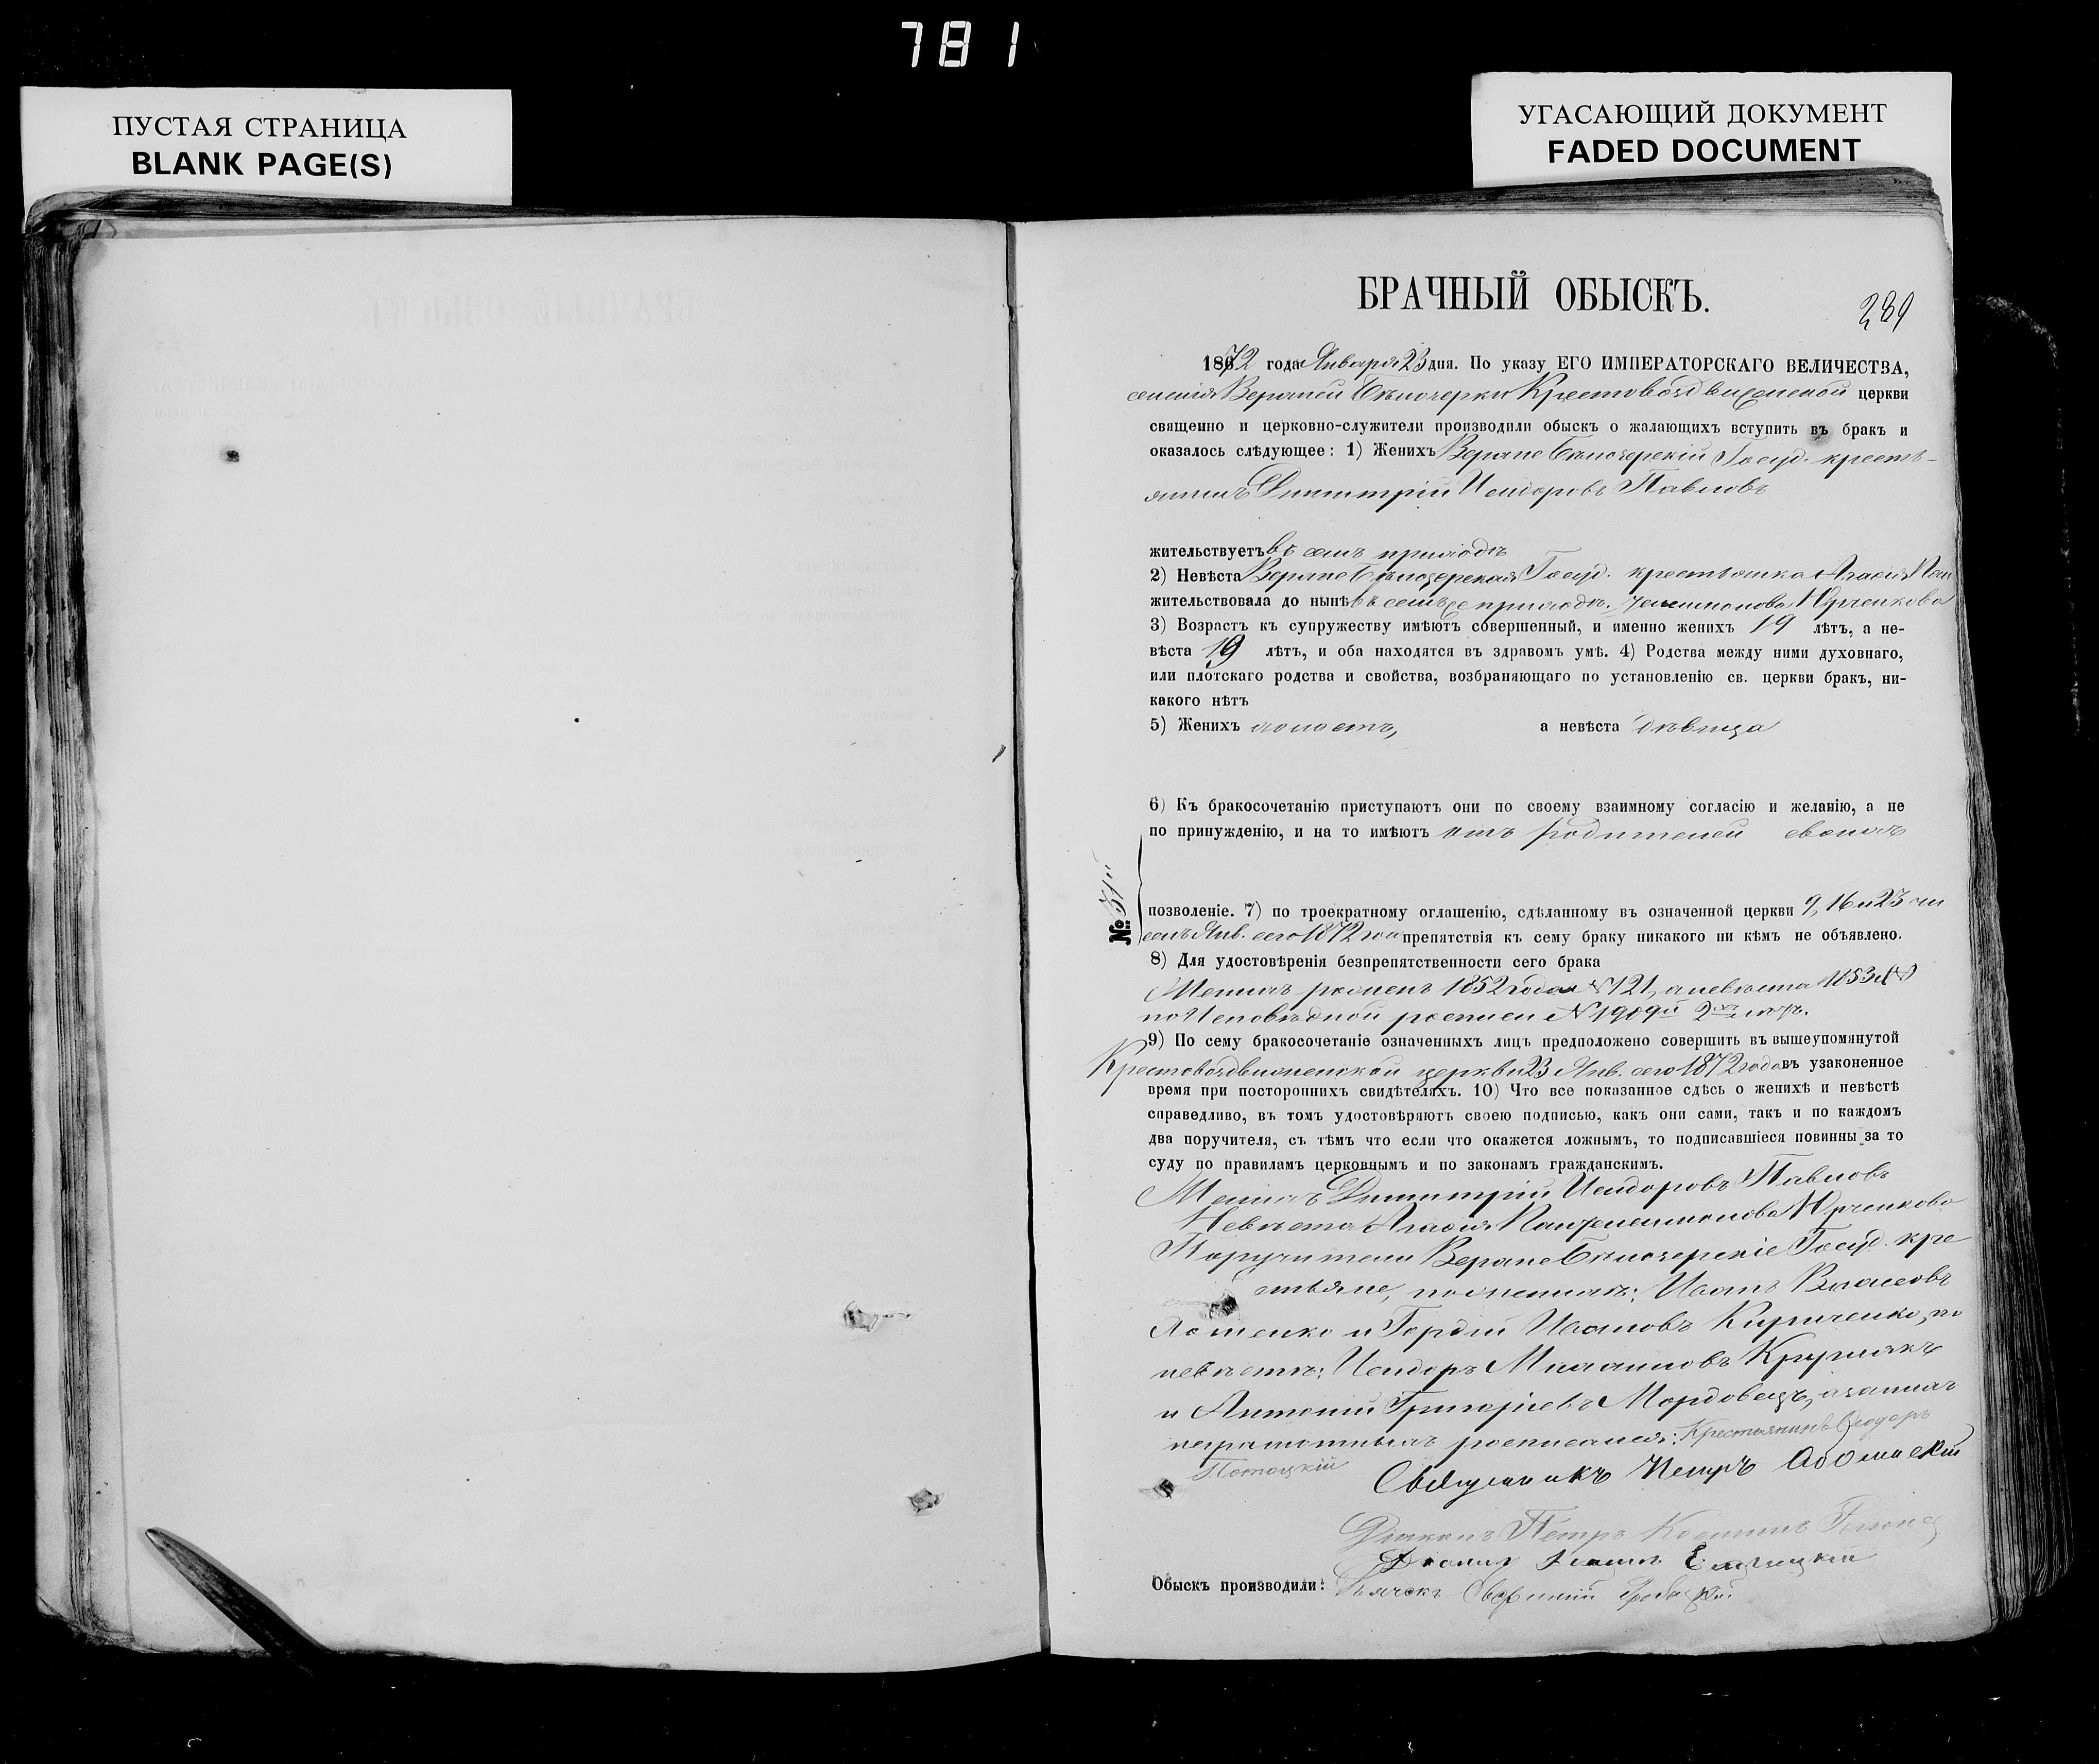 781
ПУСТАЯ СТРАНИЦА
BLANK PAGE(S)
УГАСАЮЩИЙ ДОКУМЕНТ
FADED DOCUMENT
БРАЧНЫЙ ОБЫСКЪ.
289
1872 года Января 23 дня. По указу ЕГО ИМПЕРАТОРСКАГО ВЕЛИЧЕСТВА,
селенія Верхней Бѣлозерки Крестовоздвиженской церкви
священно и церковно-служители производили обыскъ о жалающихъ вступить въ бракъ и
оказалось слѣдующее: 1) Женихъ Верхне Бѣлозерскій Госуд. кресть-
янинъ Димитрій Исидоровъ Павловъ
жительствуетъ въ семъ приходѣ
2) Невѣста Верхне Бѣлозерская Госуд. крестьянка Агафія Пан
жительствовала до нынѣ въ семъ же приходѣ. телеимонова Юрченкова
3) Возрастъ къ супружеству имѣютъ совершенный, и именно женихъ 19 лѣтъ, а не-
вѣста 19 лѣтъ, и оба находятся въ здравомъ умѣ. 4) Родства между ними духовнаго,
или плотскаго родства и свойства, возбраняющаго по установленію св. церкви бракъ, ни-
какого нѣтъ
5) Женихъ холостъ, а невѣста дѣвица
6) Къ бракосочетанію приступаютъ они по своему взаимному согласію и желанію, а не
по принужденію, и на то имѣютъ отъ родителей своихъ
№ 31й
позволеніе. 7) по троекратному оглашенію, сдѣланному въ означенной церкви 9, 16 и 23 чи
селъ Янв. сего 1872 года препятствія къ сему браку никакого ни кѣмъ не объявлено.
8) Для удостовѣренія безпрепятственности сего брака
Женихъ рожденъ 1852 года № 121, а невѣста 1853
по Исповѣдной росписи № 190й
9) По сему бракосочетаніе означенныхъ лицъ предположено совершить въ вышеупомянутой
Крестовоздвиженской церкви 23 Янв. сего 1872 года въ узаконенное
время при постороннихъ свидѣтеляхъ. 10) Что все показанное сдѣсь о женихѣ и невѣстѣ
справедливо, въ томъ удостовѣряютъ своею подписью, какъ они сами, такъ и по каждомъ
два поручителя, съ тѣмъ что если что окажется ложнымъ, то подписавшіеся повинны за то
суду по правиламъ церковнымъ и по законамъ гражданскимъ.
Женихъ Димитрій Исидоровъ Павловъ
Невѣста Агафія Пантелеимонова Юрченкова
Поручители Верхне Бѣлозерскіе Госуд. кре
стьяне, по женихѣ: Иванъ Власовъ
и Гордій Ивановъ Кириченко, по
невѣстѣ: Исидоръ Михаиловъ Круглякъ
и Антоній Григоріевъ Мордовецъ, а за нихъ
неграмотныхъ росписался: Крестьянинъ Ѳеодоръ
Потоцкій
Священникъ Петръ
Діаконъ Петръ Косминъ
Обыскъ производили: